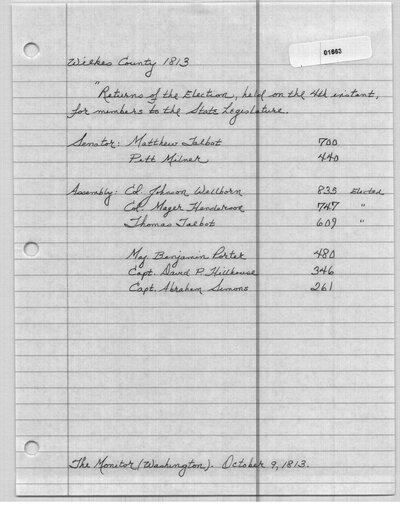 01663
Wilkes County 1813
"Returns of the Election, held on the 4th instant,
for members to the State Legislature.
Senator: Matthew Talbot 700
Pitt Milner 440
Assembly: Col. Johnson Wellborn 835 Elected
Col. Mager Henderson 747 "
Thomas Talbot 609 "
Maj. Benjamin Porter 480
Capt. David P. Hillhouse 346
Capt. Abraham Simons 261
The Monitor (Washington). October 9, 1813.